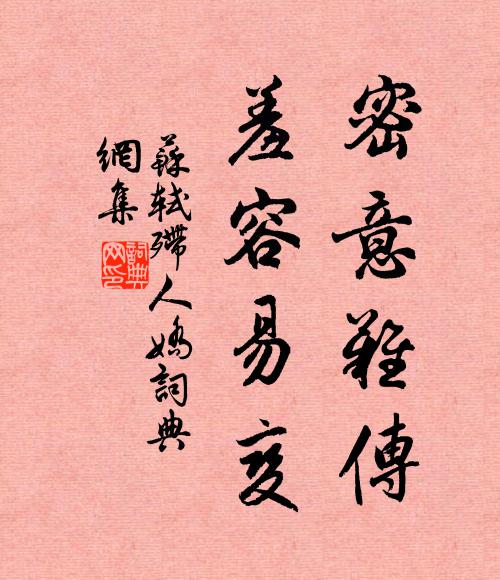 密意難傳
羞容易變
蘇軾殢人嬌詞典
網集
詞典
网印